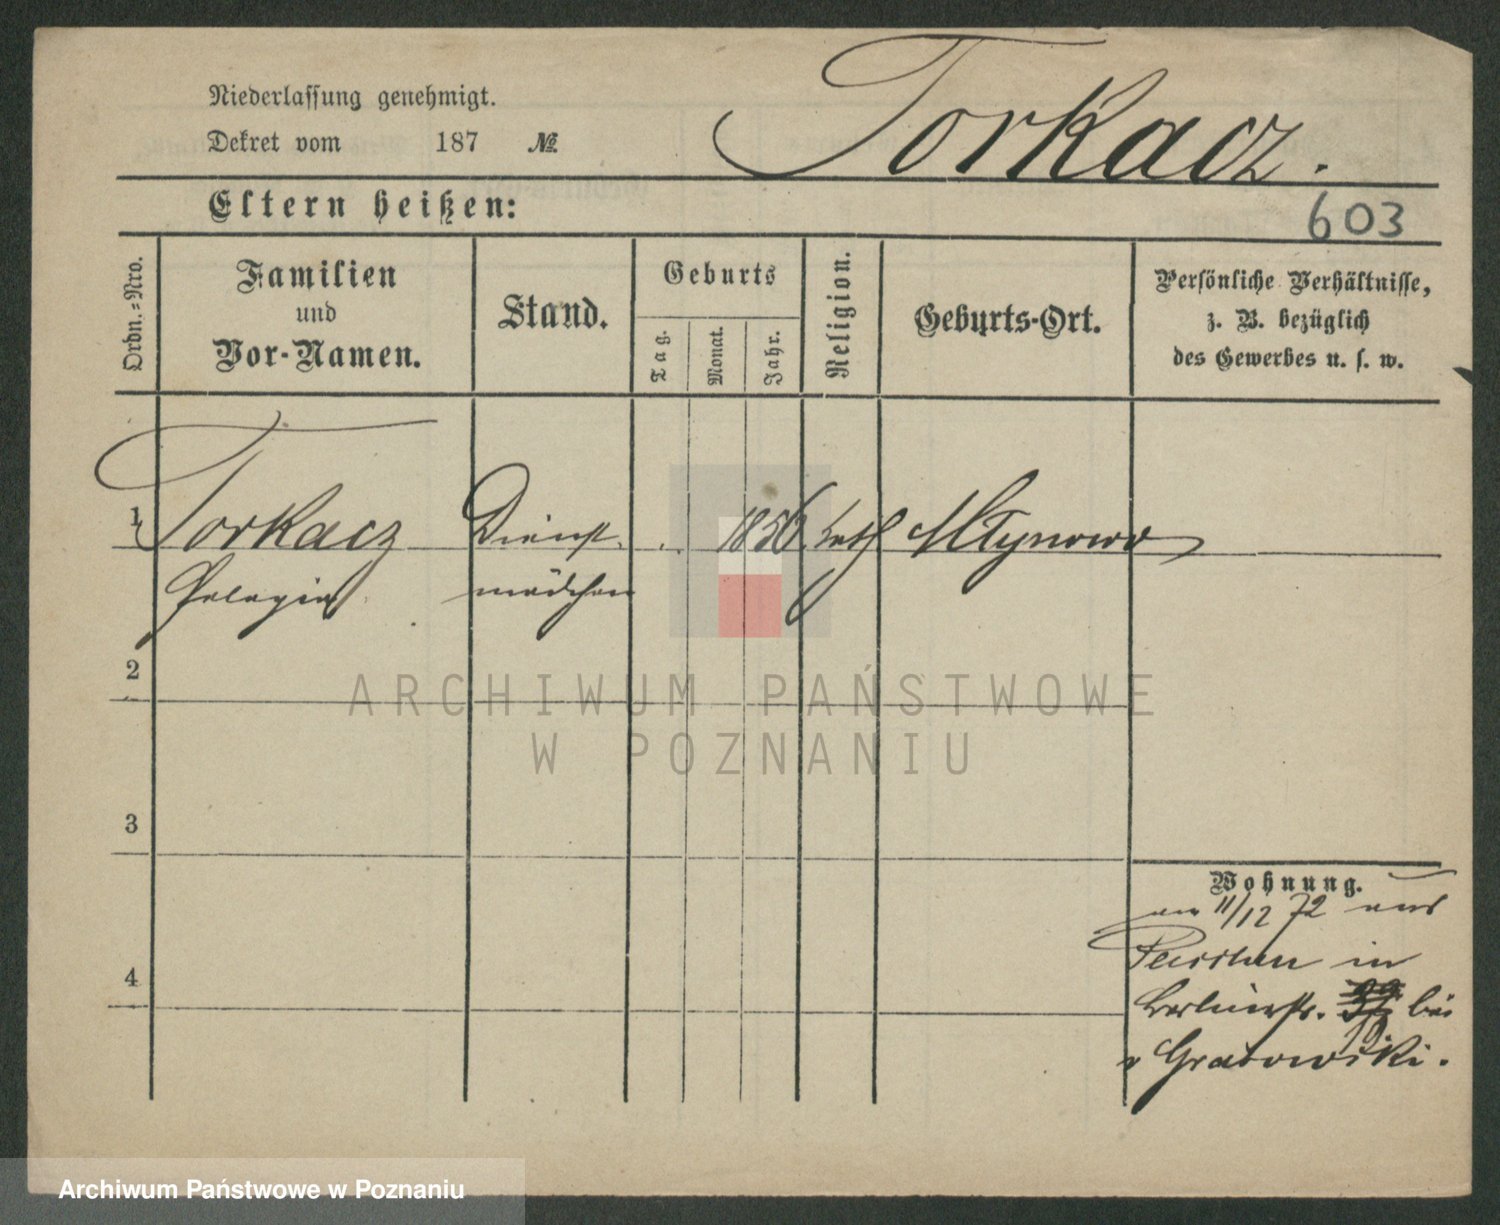 Torkacz.
Niederlassung genehmigt.
Dekret vom 187 №
Eltern heißen:
603
Ordn.-Nro.
Familien
und
Vor-Namen.
Stand.
Geburts
Tag.
Monat.
Jahr.
Religion.
Geburts-Ort.
Persönliche Verhältnisse,
z. B. bezüglich
des Gewerbes u. s. w.
1 Torkacz Dienst 1856 kath Młynowo
Pelagia mädchen
2
3
4
Wohnung.
am 11/12 72 aus
in
Berlinerstr. bei
v Grabowski.
ARCHIWUM PAŃSTWOWE
W POZNANIU
Archiwum Państwowe w Poznaniu